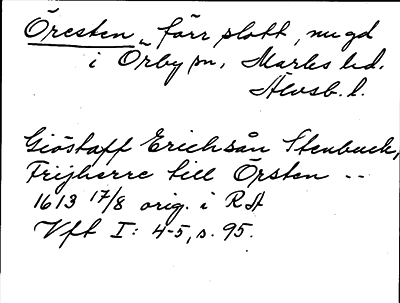 Öresten, förr slott, nu gd
i Örby sn, Marks hd.
Älvsb. l.
Giöstaff Erichsån Stenbuck,
Frijherre till Örsten --
1613 17/8 orig. i RA
Vft I: 4-5, s. 95.